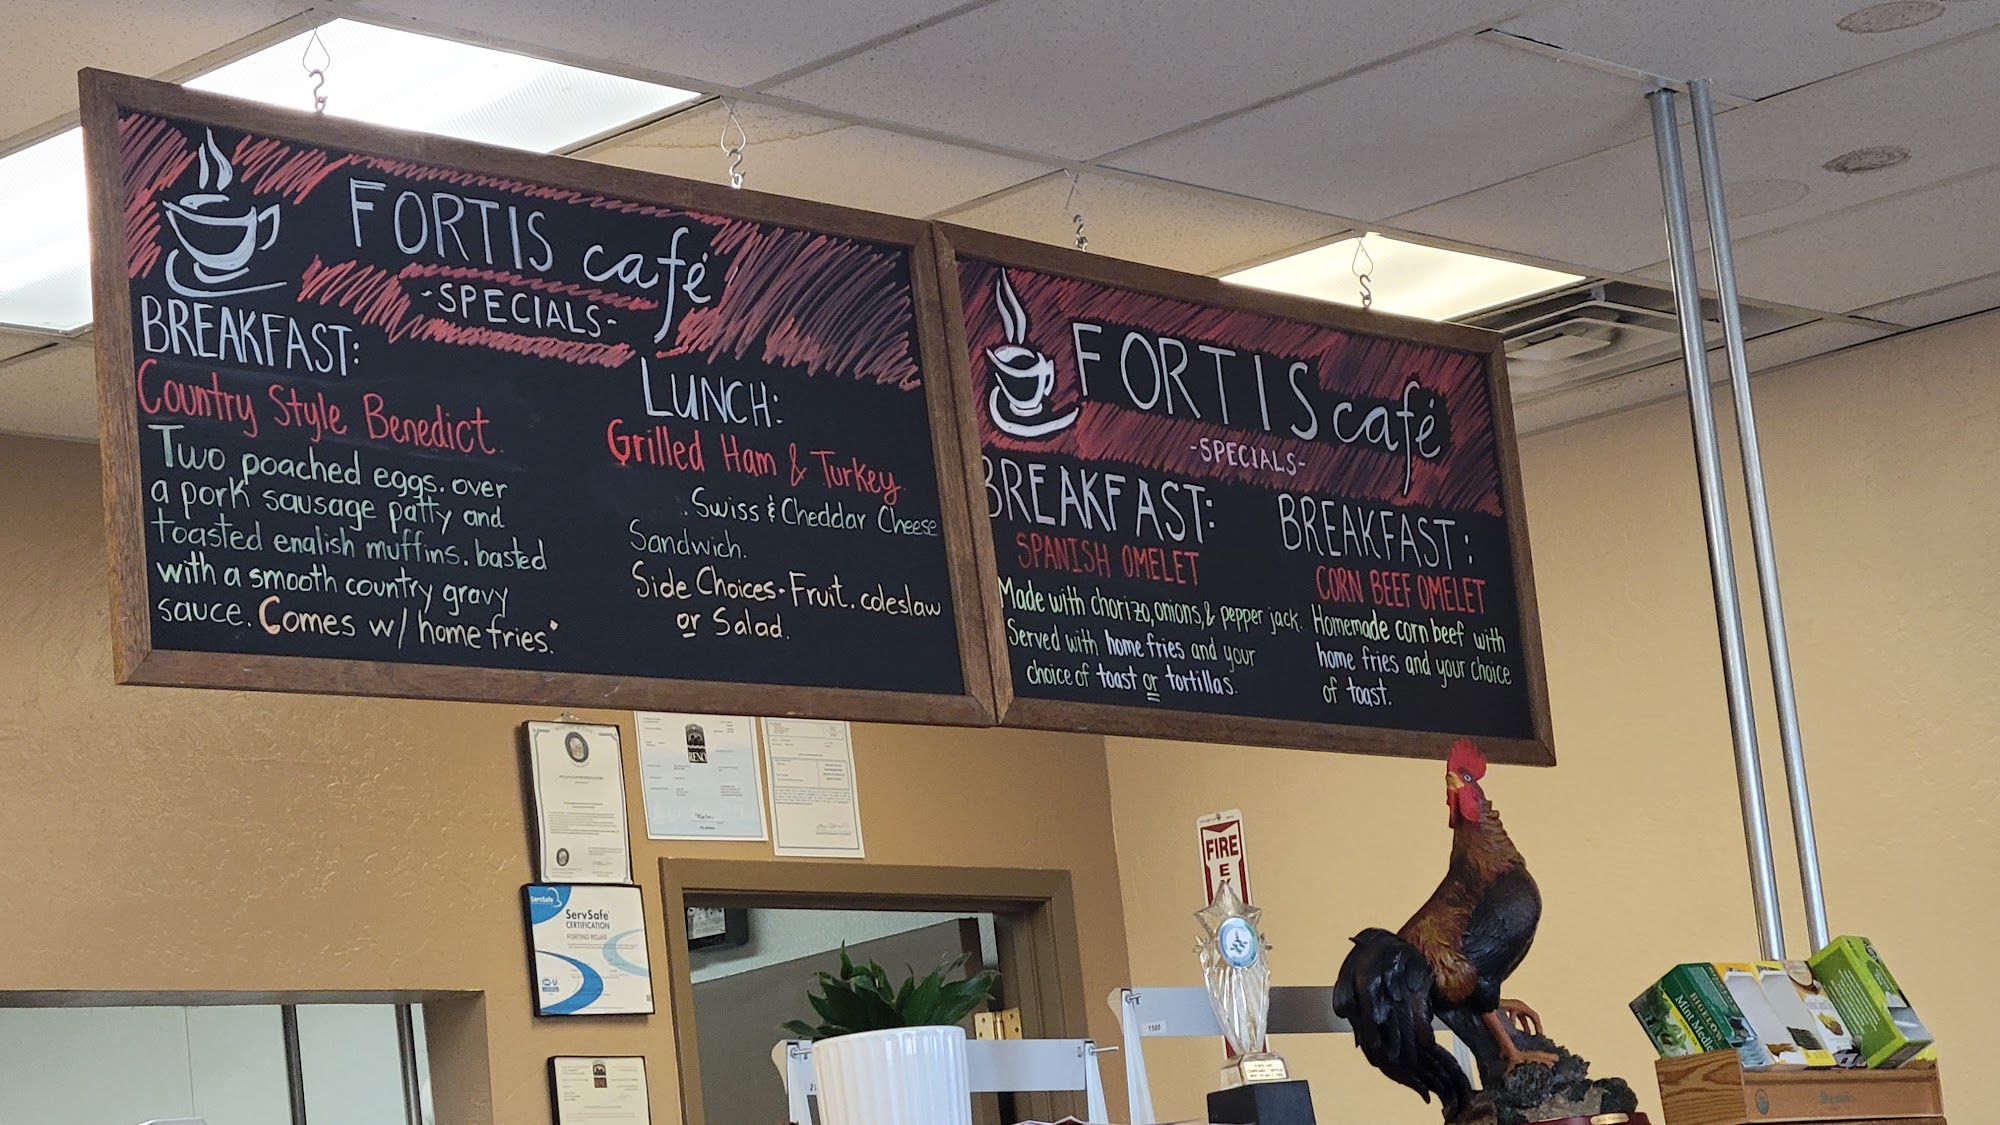 FORTIS café
-SPECIALS-
BREAKFAST:
Country Style Benedict.
Two poached eggs. over
a pork sausage patty and
toasted english muffins. basted
with a smooth country gravy
sauce. Comes w/ home fries.
LUNCH:
Grilled Ham & Turkey.
Swiss & Cheddar Cheese
Sandwich.
Side Choices - Fruit. coleslaw
or Salad.
FORTIS café
-SPECIALS-
BREAKFAST:
SPANISH OMELET
Made with chorizo, onions, & pepper jack.
Served with home fries and your
choice of toast or tortillas.
BREAKFAST:
CORN BEEF OMELET
Homemade corn beef with
home fries and your choice
of toast.
RENO
ServSafe
ServSafe
CERTIFICATION
FORTINO ROJAS
FIRE
1500
BIGELOW
Mint Medley